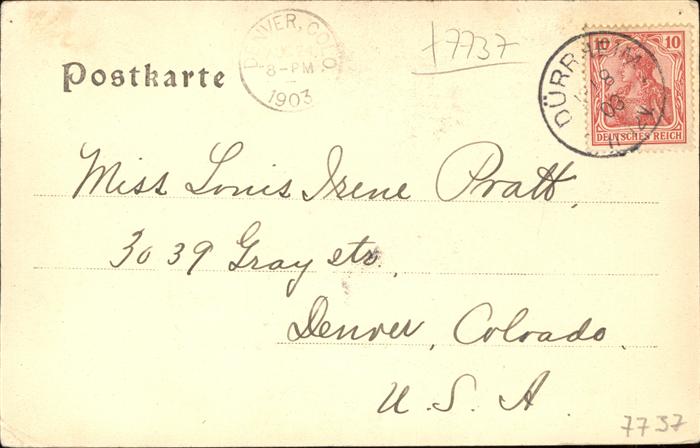 Postkarte
DENVER, COLO.
8-PM
1903
7737
10 10
DEUTSCHES REICH
DÜRRHEIM
Miss Lonis Irene Pratt,
3039 Gray str.,
Denver, Colorado.
U. S. A.
7737